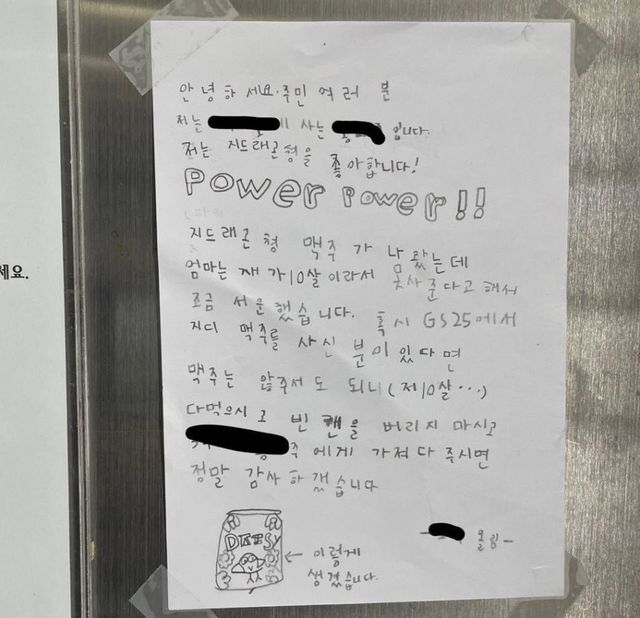 안녕하세요. 주민 여러분
저는 사는 입니다.
저는 지드래곤형을 좋아합니다!
POWER POWER!!
지드래곤 형 맥주가 나왔는데
엄마는 제가 10살이라서 못사준다고 해서
조금 서운했습니다. 혹시 GS25에서
지디 맥주를 사신 분이 있다면
맥주는 않주셔도 되니(제10살...)
다먹으시고 빈 캔을 버리지 마시고
에게 가져다 주시면
정말 감사하겠습니다
올림-
← 이렇게
생겼습니다.
세요.